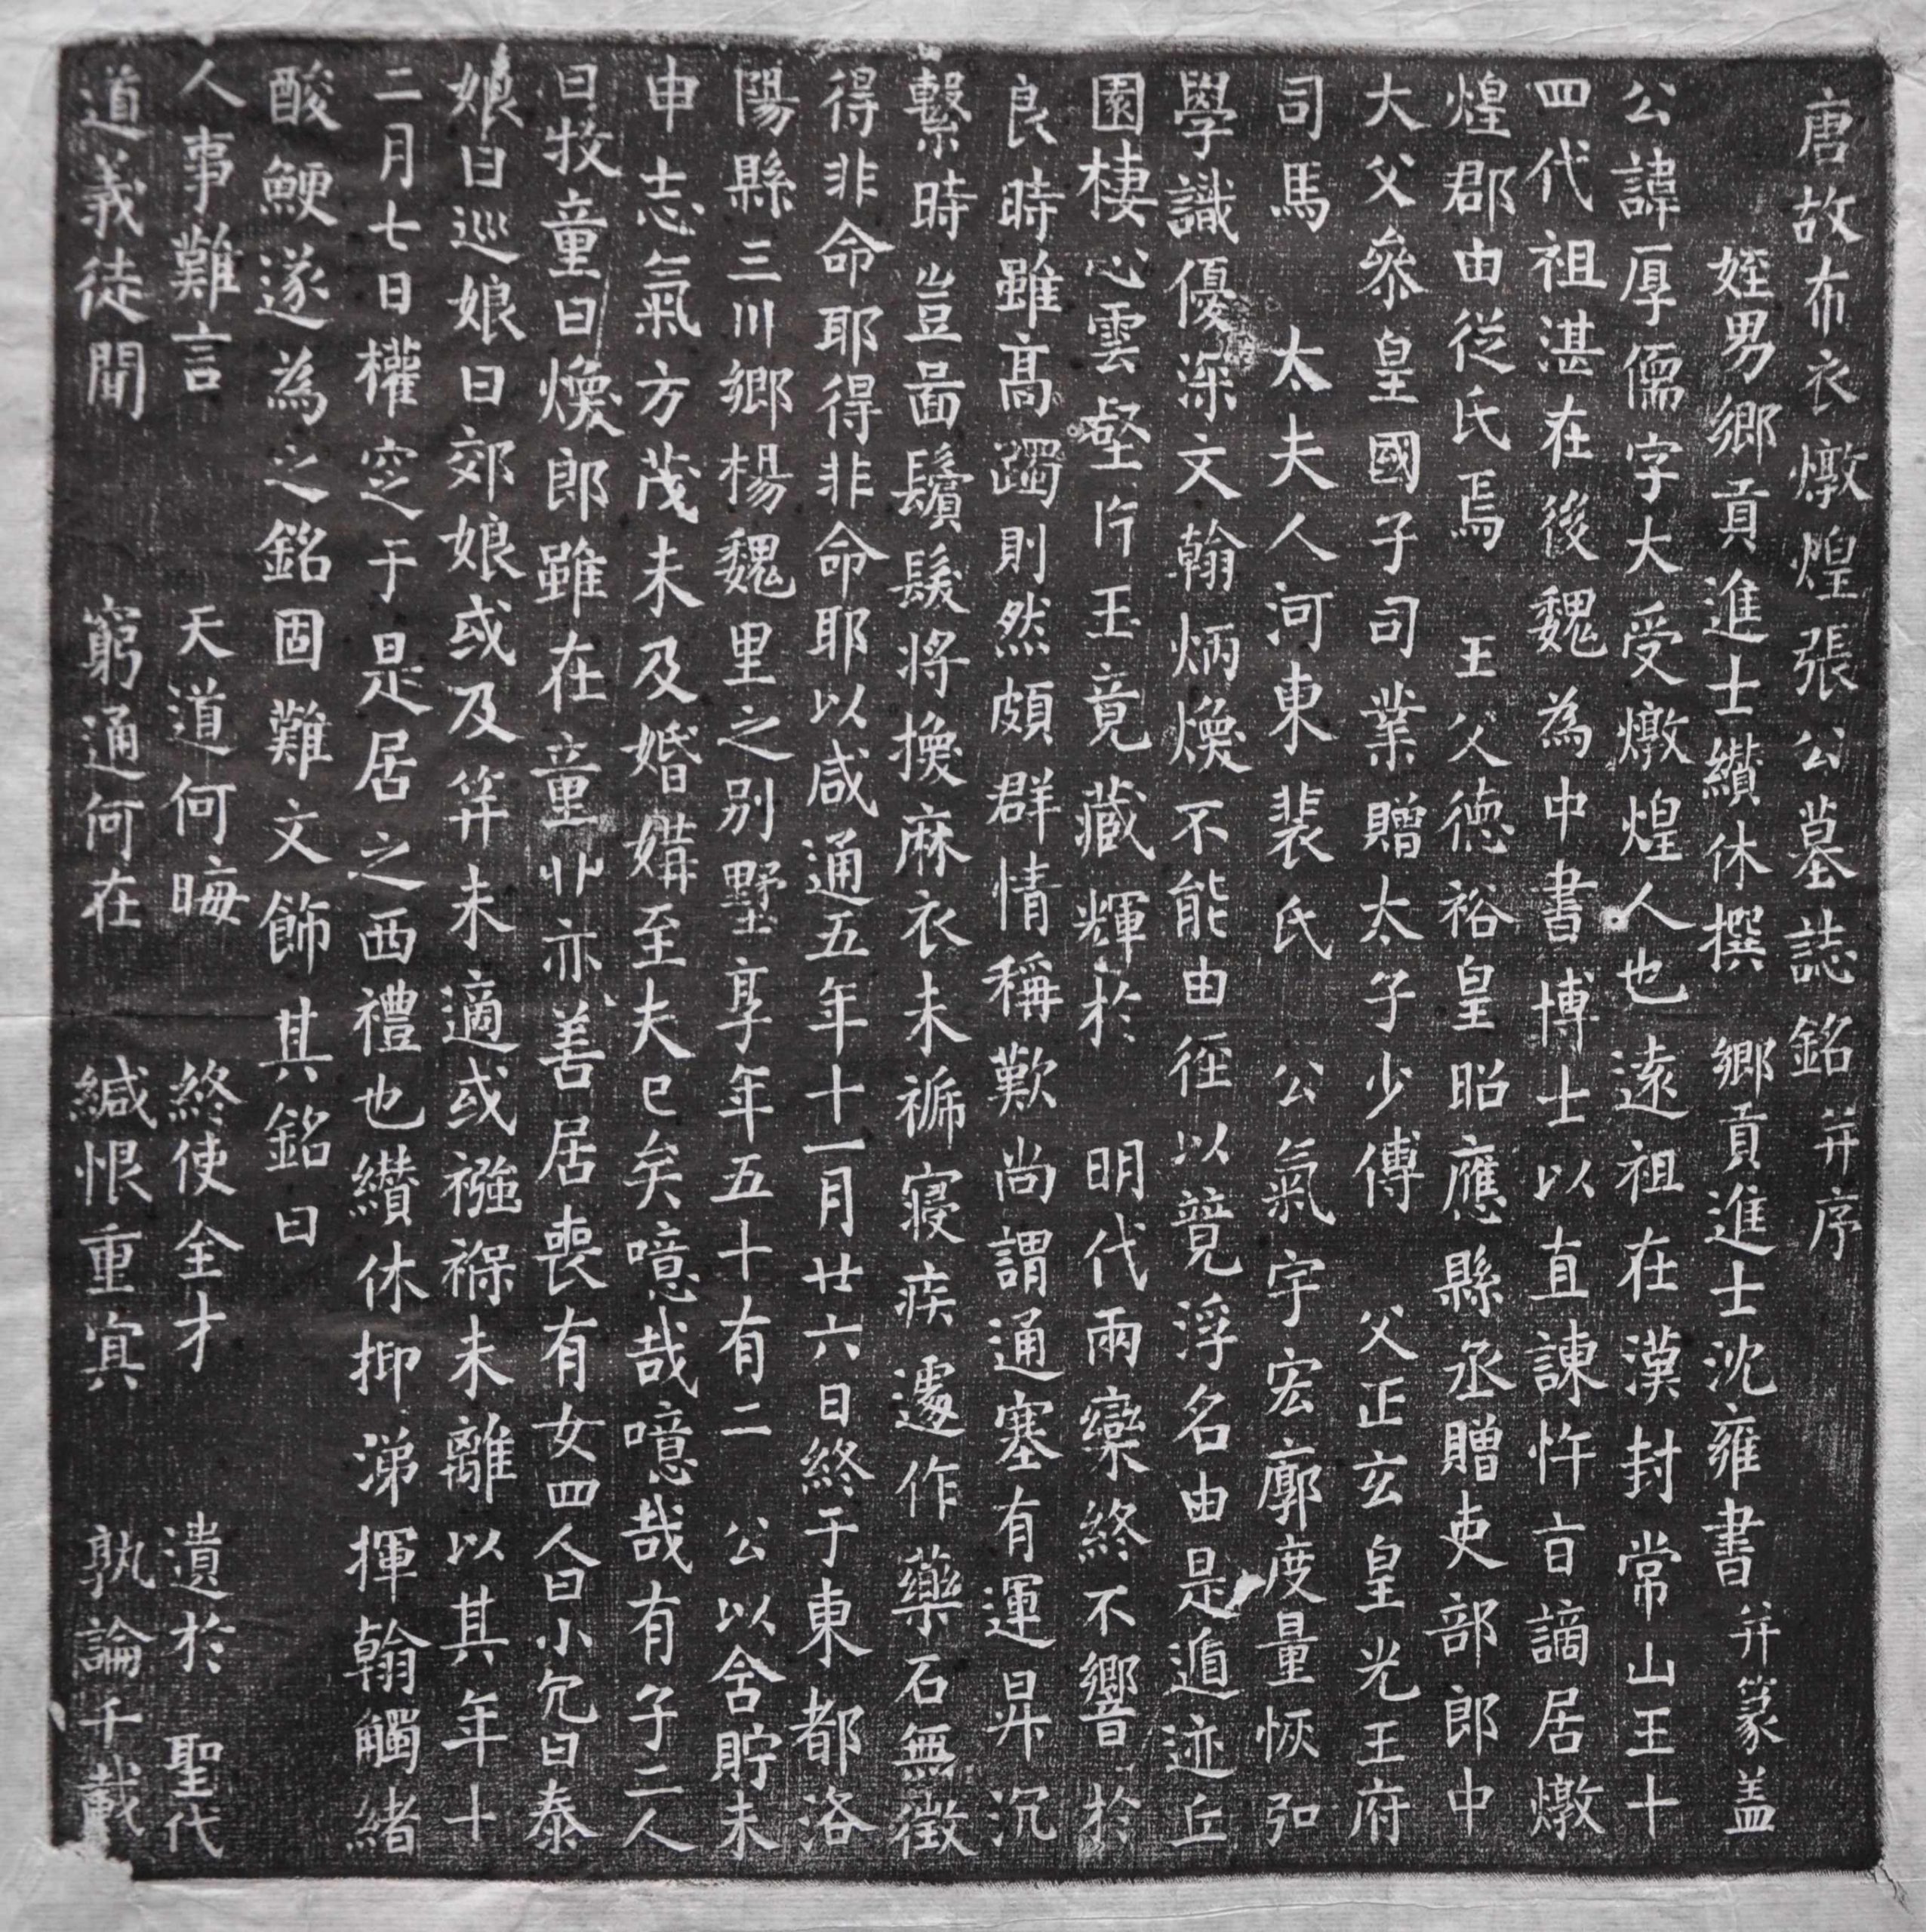 唐故布衣燉煌張公墓誌銘并序
姪男鄉貢進士纘休撰 鄉貢進士沈雍書并篆盖
公諱厚儒字大受燉煌人也遠祖在漢封常山王十
四代祖湛在後魏為中書博士以直諫忤旨謫居燉
煌郡由從氏焉 王父德裕皇昭應縣丞贈吏部郎中
大父叅皇國子司業贈太子少傅 父正玄皇光王府
司馬 太夫人河東裴氏 公氣宇宏廓度量恢弘
學識優深文翰炳煥不能由徑以競浮名由是遁迹丘
園棲心雲壑片玉竟藏輝於 明代兩欒終不響於
良時雖高躅則然頗群情稱歎尚謂通塞有運昇沉
繫時豈啚鬢髮將換麻衣未褫寢疾遽作藥石無徵
得非命耶得非命耶以咸通五年十一月廿六日終于東都洛
陽縣三川鄉楊魏里之別墅享年五十有二 公以舍貯未
申志氣方茂未及婚媾至夫已矣噫哉噫哉有子二人
曰牧童曰煥郎雖在童丱亦善居喪有女四人曰小兒曰泰
娘曰巡娘曰郊娘或及笄未適或襁褓未離以其年十
二月七日權窆于是居之西禮也纘休抑涕揮翰觸緒
酸鯁遂為之銘固難文飾其銘曰
人事難言 天道何晦 終使全才 遺於 聖代
道義徒聞 窮通何在 緘恨重冥 孰論千載